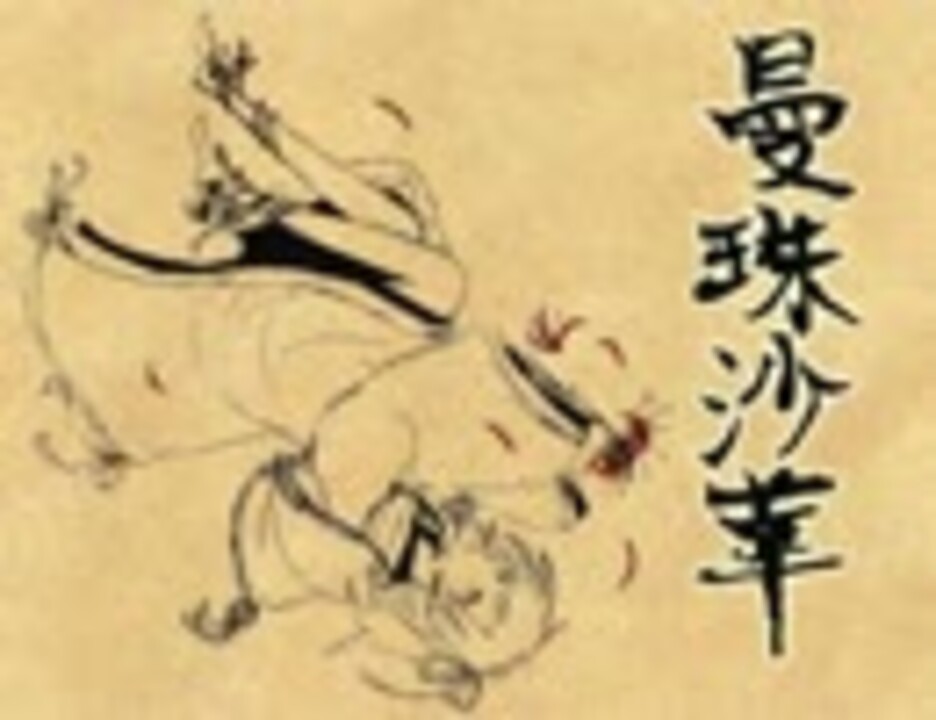 曼珠沙華